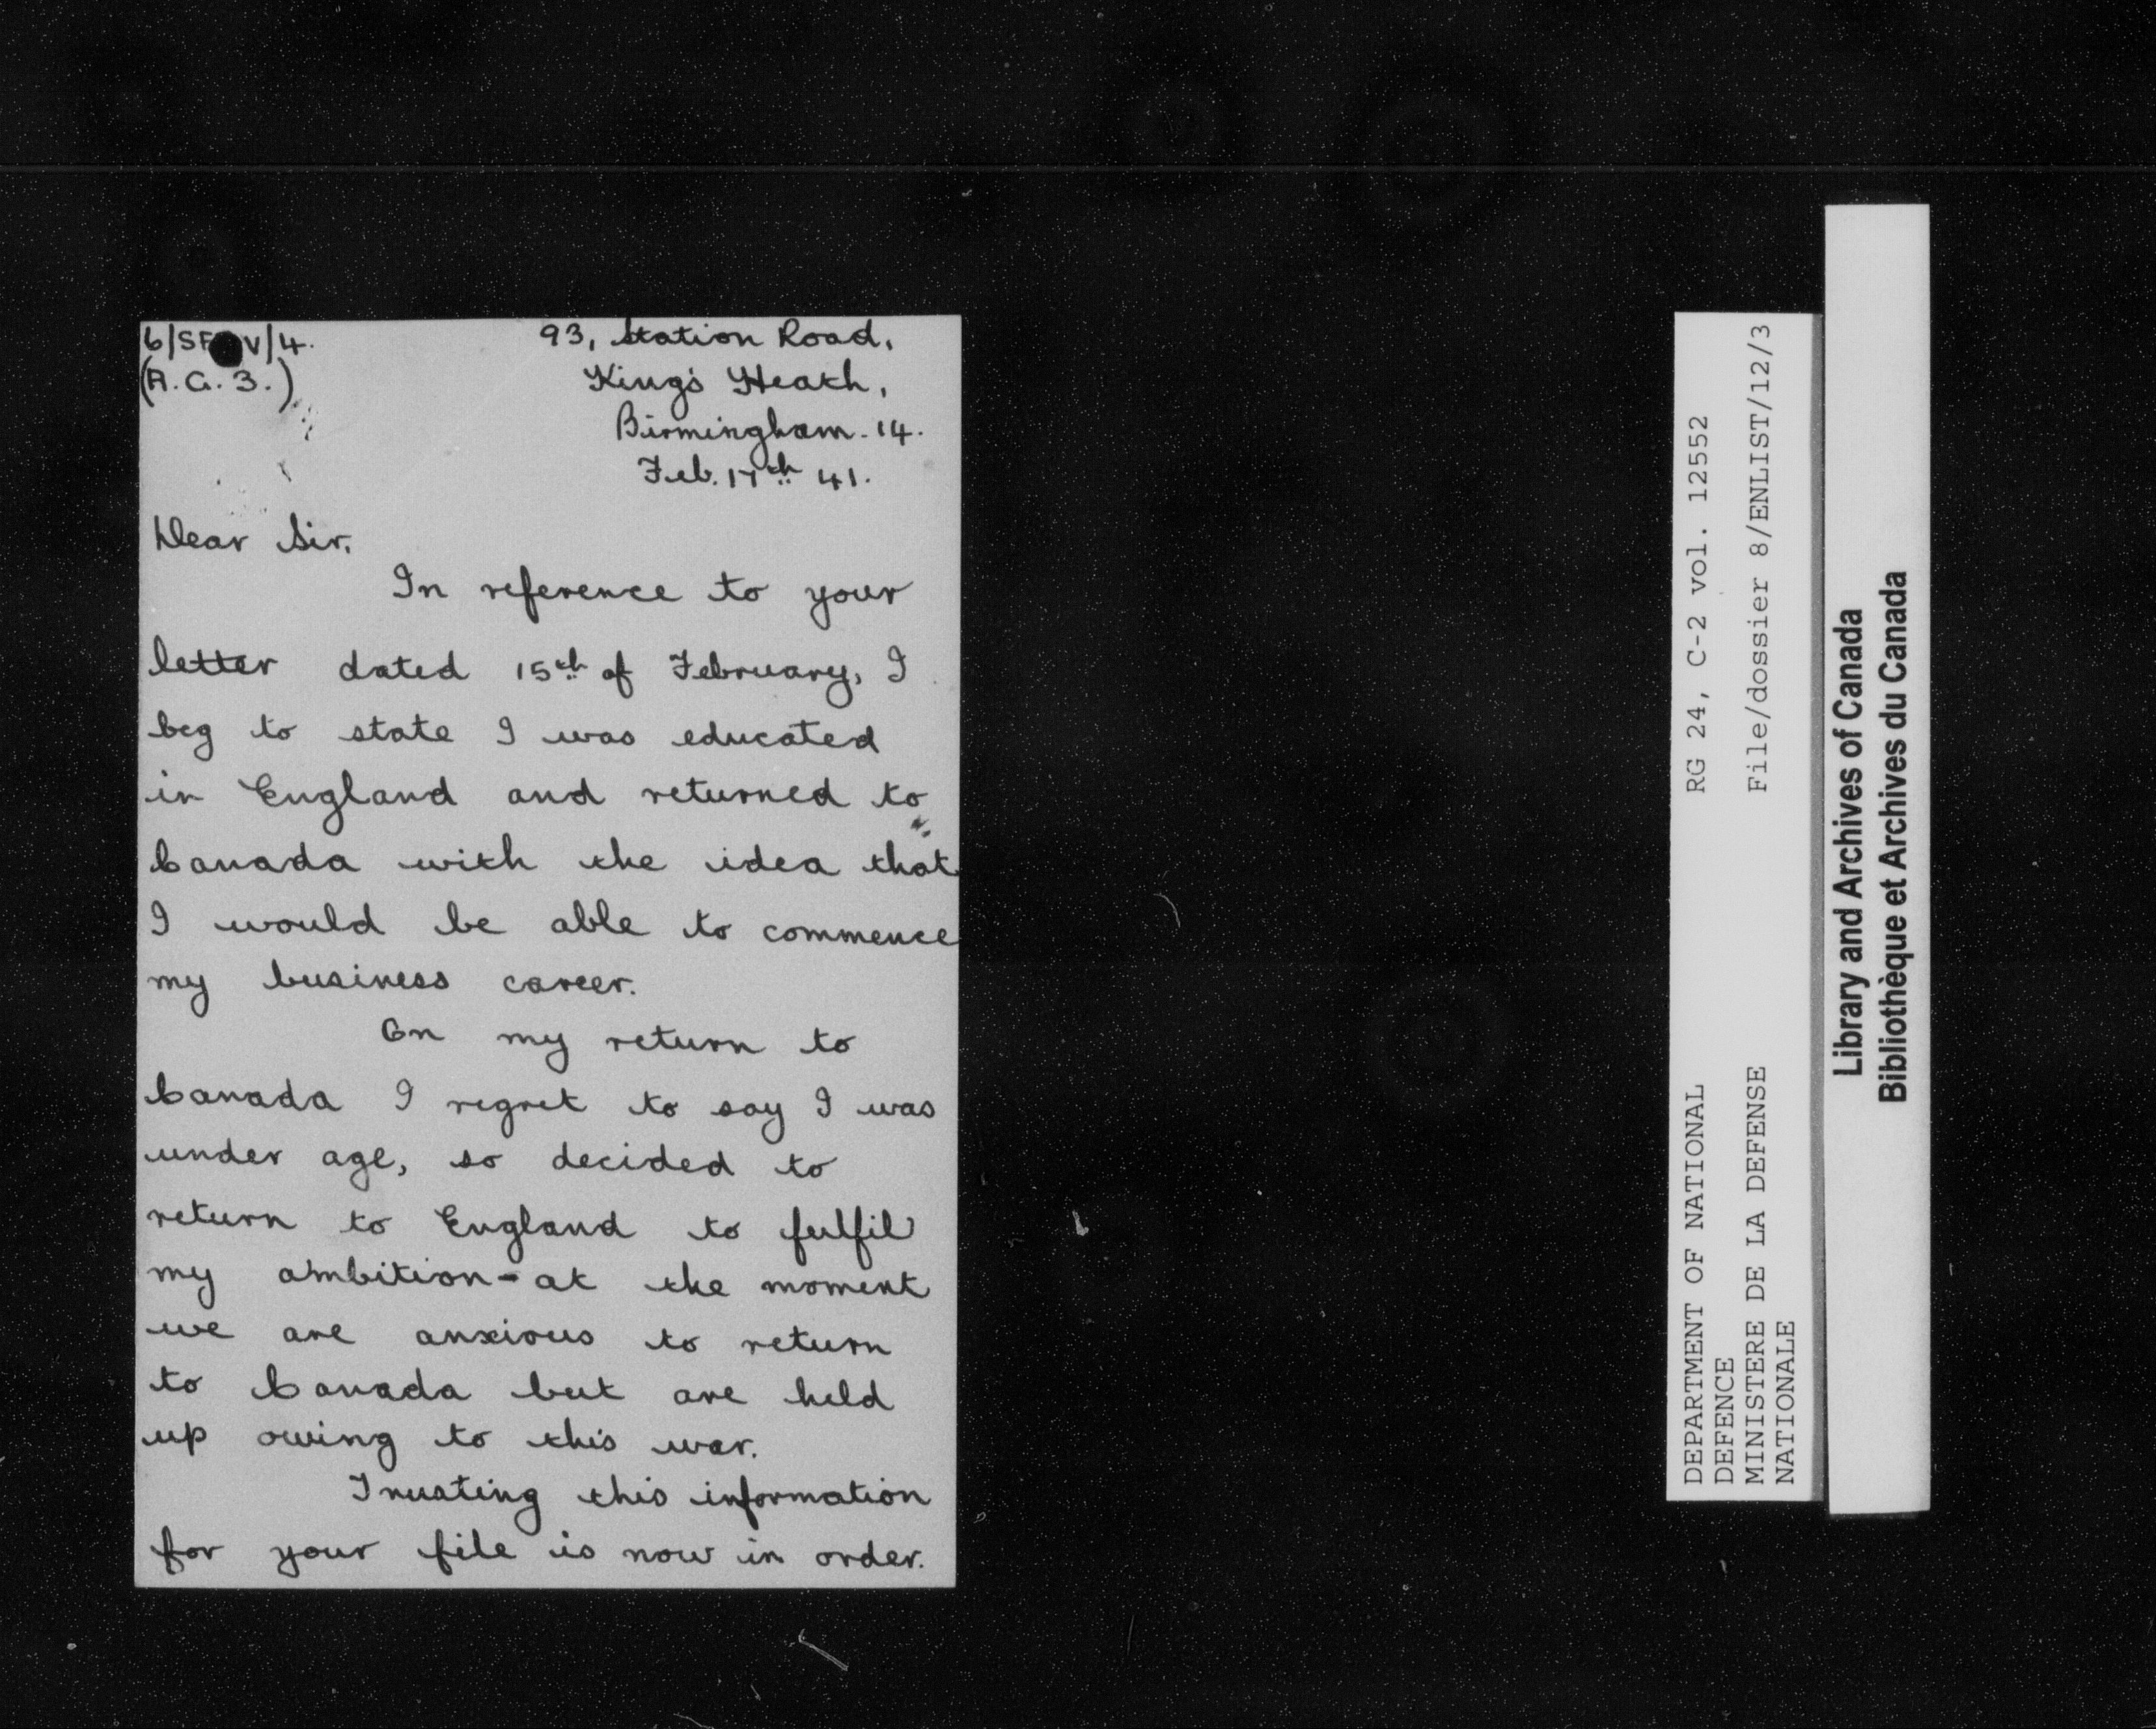 6/SF V/4.
(A.G.3.)
93, Station Road,
King's Heath,
Birmingham. 14.
Feb. 17th 41.
Dear Sir,
In reference to your
letter dated 15th of February, I
beg to state I was educated
in England and returned to
Canada with the idea that
I would be able to commence
my business career.
On my return to
Canada I regret to say I was
under age, so decided to
return to England to fulfil
my ambition - at the moment
we are anxious to return
to Canada but are held
up owing to this war.
Trusting this information
for your file is now in order.
DEPARTMENT OF NATIONAL
DEFENCE
MINISTERE DE LA DEFENSE
NATIONALE
RG 24, C-2 vol. 12552
File/dossier 8/ENLIST/12/3
Library and Archives of Canada
Bibliothèque et Archives du Canada